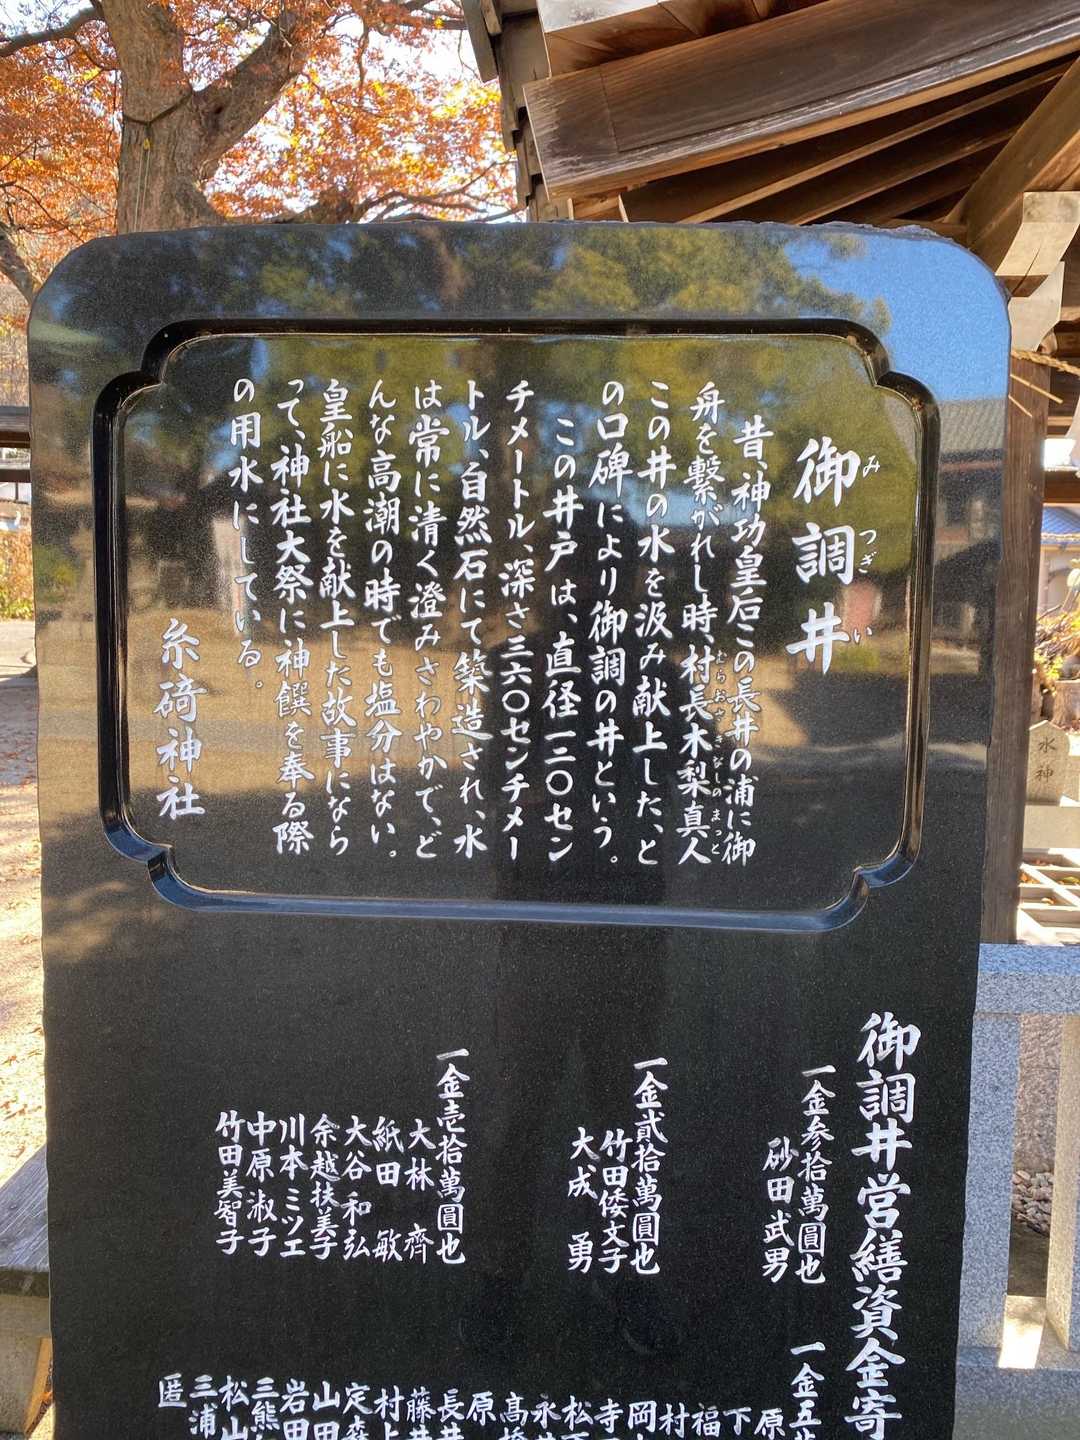 御調井
みつぎい
昔、神功皇后この長井の浦に御
舟を繋がれし時、村長木梨真人
むらおさきなしのまっと
この井の水を汲み献上した、と
の口碑により御調の井という。
この井戸は、直径一三〇セン
チメートル、深さ三六〇センチメー
トル、自然石にて築造され、水
は常に清く澄みさわやかで、ど
んな高潮の時でも塩分はない。
皇船に水を献上した故事になら
って、神社大祭に神饌を奉る際
の用水にしている。
糸碕神社
水神
御調井営繕資金寄
一金参拾萬圓也
砂田武男
一金貳拾萬圓也
竹田倭文子
大成勇
一金壱拾萬圓也
大林齊
紙田敏
大谷和弘
余越扶美子
川本ミツエ
中原淑子
竹田美智子
一金五
原
下
福
村
岡
寺
松
永
髙橋
原
長井
藤井
村上
定森
山田
岩田
三熊
松山
三浦
匿